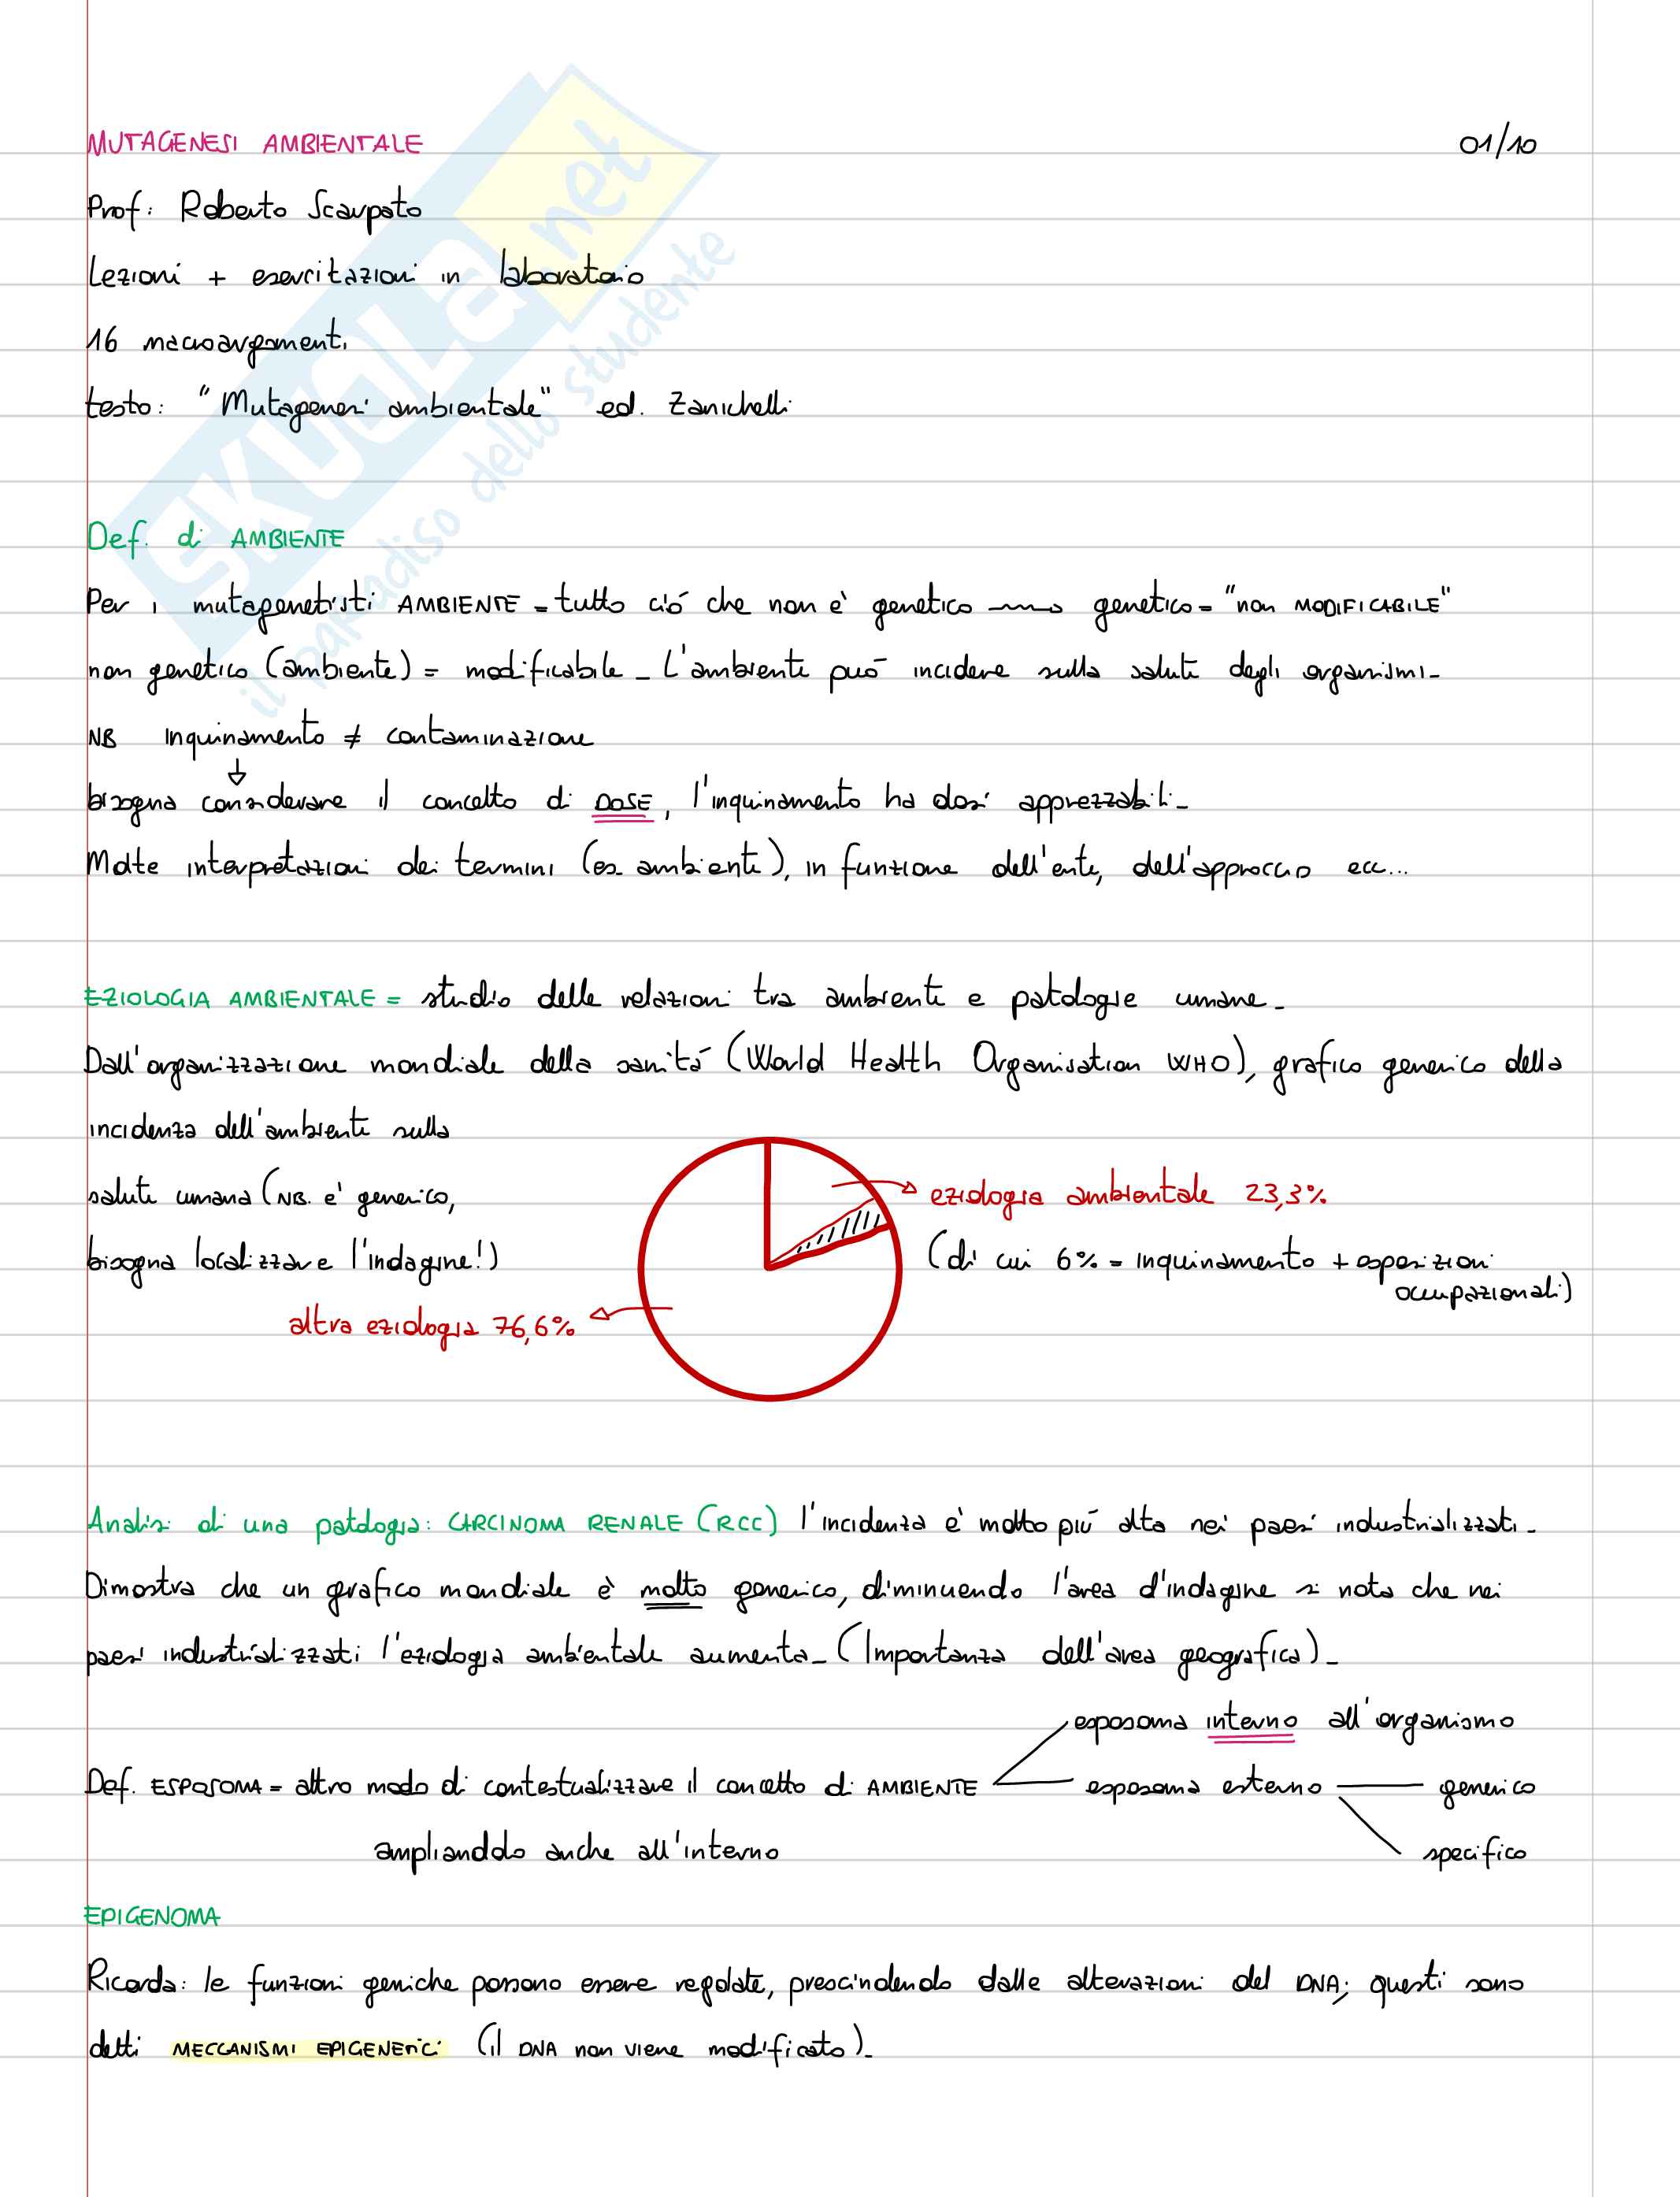 MUTAGENESI AMBIENTALE 01/10
Prof: Roberto Scarpato
Lezioni + esercitazioni in laboratorio
16 macroargomenti
testo: "Mutagenesi ambientale" ed. Zanichelli
Def. di AMBIENTE
Per i mutagenetisti AMBIENTE = tutto ció che non è genetico → genetico = "non MODIFICABILE"
non genetico (ambiente) = modificabile _ L'ambiente puó incidere sulla salute degli organismi _
NB inquinamento ≠ contaminazione
↓
bisogna considerare il concetto di DOSE, l'inquinamento ha dosi apprezzabili _
Molte interpretazioni dei termini (es. ambiente), in funzione dell'ente, dell'approccio ecc...
EZIOLOGIA AMBIENTALE = studio delle relazioni tra ambiente e patologie umane _
Dall'organizzazione mondiale della sanitá (World Health Organisation WHO), grafico generico della
incidenza dell'ambiente sulla
salute umana (NB. e' generico,
→ eziologia ambientale 23,3%
bisogna localizzare l'indagine!)
(di cui 6% = inquinamento + esposizioni
occupazionali)
altra eziologia 76,6% ←
Analisi di una patologia: CARCINOMA RENALE (RCC) l'incidenza è molto piú alta nei paesi industrializzati _
Dimostra che un grafico mondiale è molto generico, diminuendo l'area d'indagine si nota che nei
paesi industrializzati l'eziologia ambientale aumenta _ (Importanza dell'area geografica) _
esposoma interno all'organismo
Def. ESPOSOMA = altro modo di contestualizzare il concetto di AMBIENTE esposoma esterno generico
ampliandolo anche all'interno specifico
EPIGENOMA
Ricorda: le funzioni geniche possono essere regolate, prescindendo dalle alterazioni del DNA; questi sono
detti MECCANISMI EPIGENETICI (il DNA non viene modificato) _
SKUOLA.net
il paradiso dello studente